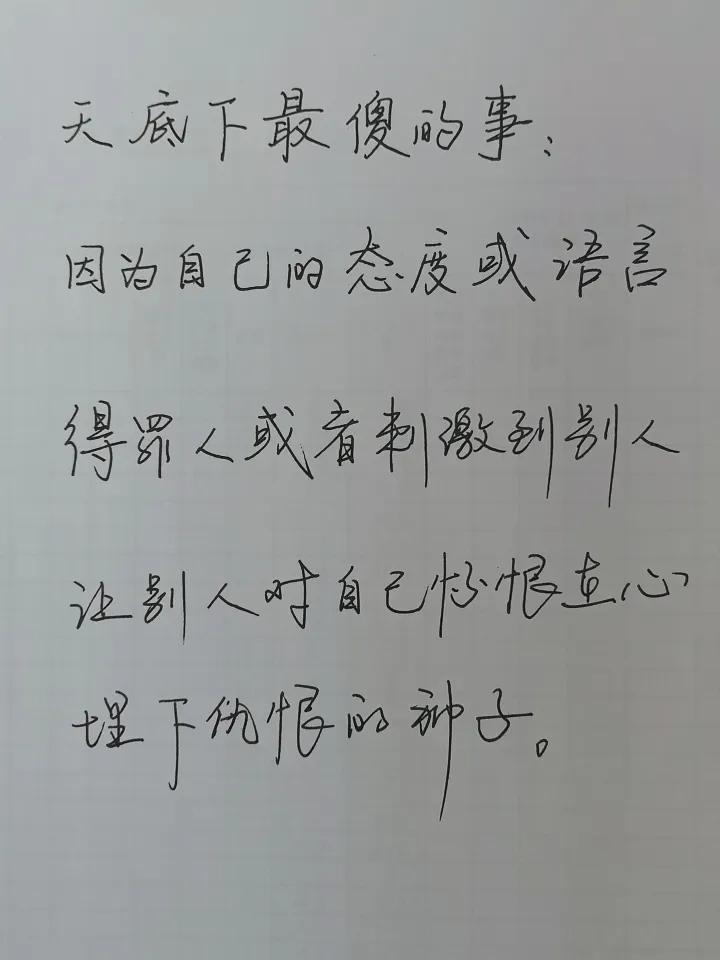 天底下最傻的事：
因为自己的态度或语言
得罪人或者刺激到别人
让别人对自己怀恨在心
埋下仇恨的种子。